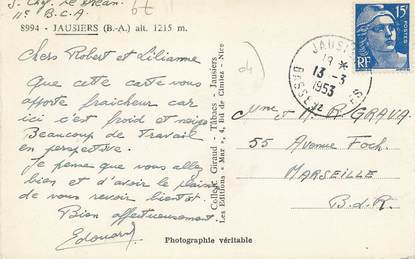 S. Chef Le Dréan
11e B.C.A.
8994 - JAUSIERS (B.-A.) alt. 1215 m.
Chers Robert et Lilianne
Que cette carte vous
apporte fraicheur car
ici c'est froid et neige
Beaucoup de travail
en perspective.
Je pense que vous allez
bien et d'avoir le plaisir
de vous revoir bientôt.
Bien affectueusement.
Edouard
Collect. Giraud - Tabacs - Jausiers
Les Editions " Mar ", 4, Bd de Cimiez - Nice
Photographie véritable
15F
POSTES
RF
JAUSIERS
19 *
13 - 3
1953
BASSES
Mme et M. R. GRAVA.
55 Avenue Foch.
MARSEILLE
B.d.R.